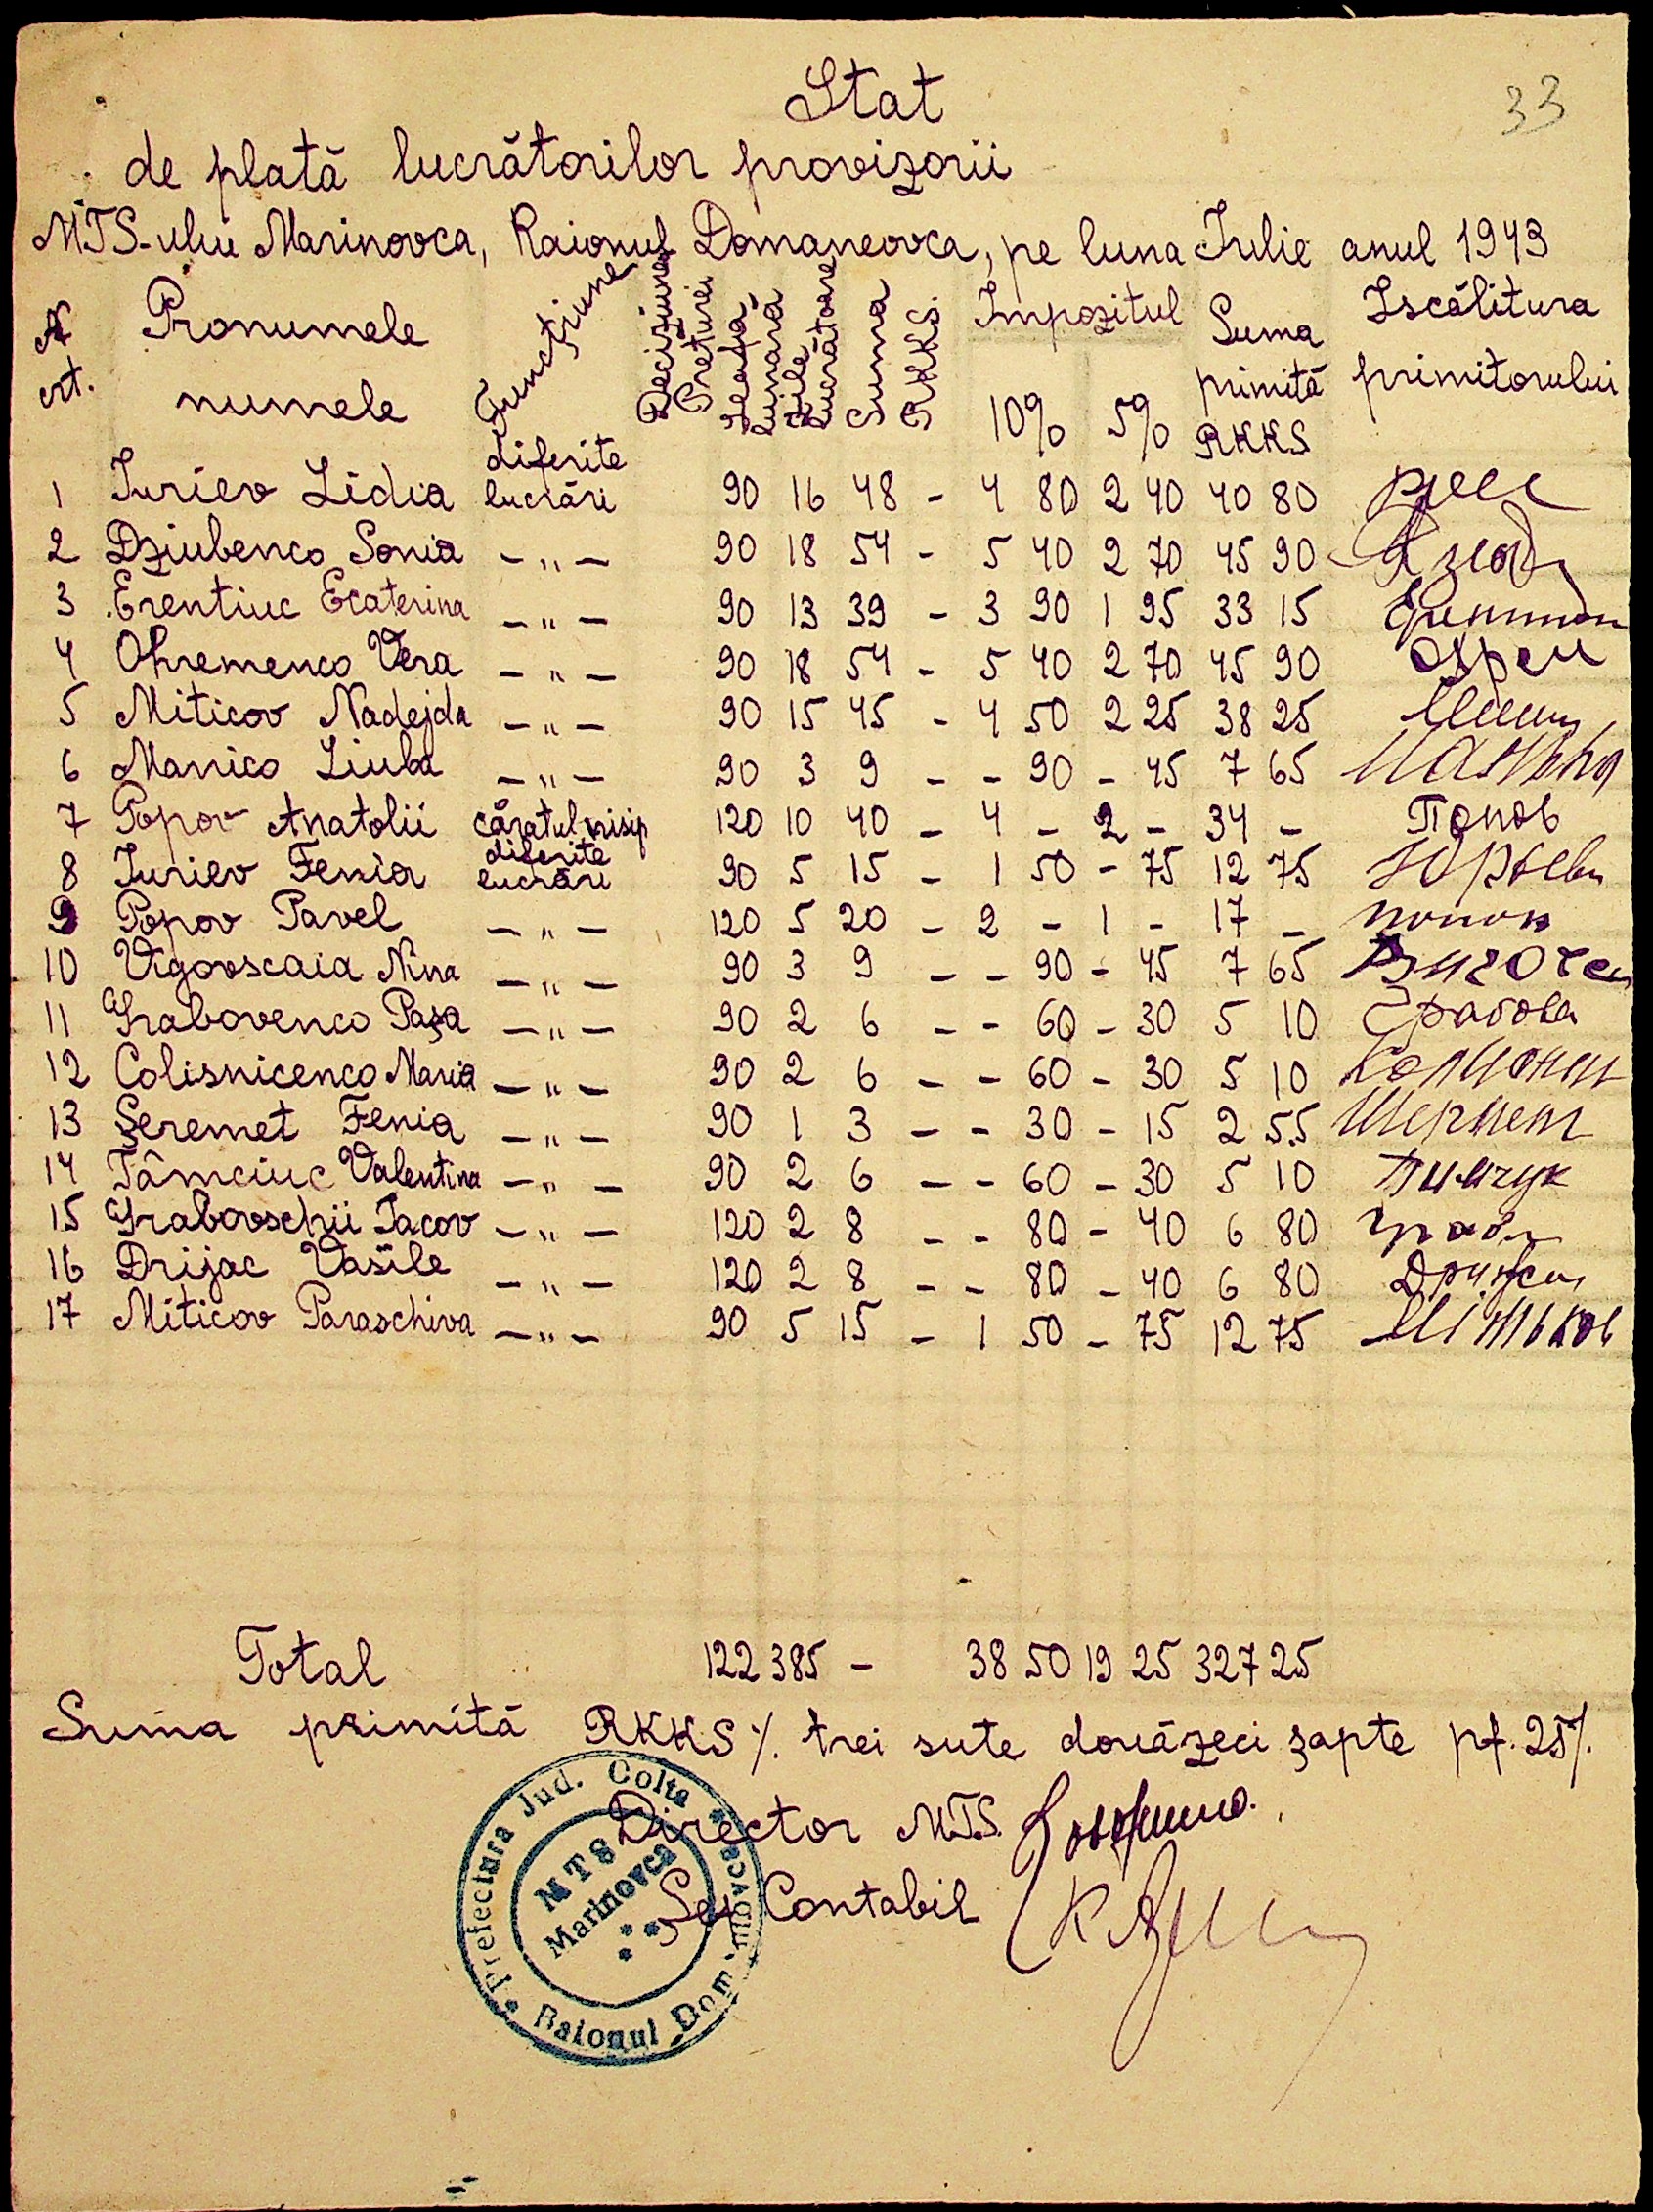 33
Stat
de plată lucrătorilor provizorii
MTS-ului Marinovca, Raionul Domaneovca, pe luna Iulie anul 1943
N crt. Pronumele numele Funcțiune Deciziunea Preturei Leafa lunară Zile lucrătoare Suma RKKS Impozitul 10% 5% Suma primită RKKS Iscălitura primitorului
1 Iuriev Lidia diferite lucrări 90 16 48 - 4 80 2 40 40 80
2 Dziubenco Sonia - " - 90 18 54 - 5 40 2 70 45 90
3 Erentiuc Ecaterina - " - 90 13 39 - 3 90 1 95 33 15
4 Ohremenco Vera - " - 90 18 54 - 5 40 2 70 45 90 Охрем
5 Miticov Nadejda - " - 90 15 45 - 4 50 2 25 38 25
6 Manico Liuba - " - 90 3 9 - - 90 - 45 7 65
7 Popov Anatolii căratul nisip 120 10 40 - 4 - 2 - 34 - Попов
8 Iuriev Fenia diferite lucrări 90 5 15 - 1 50 - 75 12 75 Юрьева
9 Popov Pavel - " - 120 5 20 - 2 - 1 - 17 - попов
10 Vigovscaia Nina - " - 90 3 9 - - 90 - 45 7 65
11 Grabovenco Pașa - " - 90 2 6 - - 60 - 30 5 10
12 Colisnicenco Maria - " - 90 2 6 - - 60 - 30 5 10
13 Șeremet Fenia - " - 90 1 3 - - 30 - 15 2 55 Шеремет
14 Tâmciuc Valentina - " - 90 2 6 - - 60 - 30 5 10 Тимчук
15 Grabovschii Iacov - " - 120 2 8 - - 80 - 40 6 80
16 Drijac Vasile - " - 120 2 8 - - 80 - 40 6 80
17 Miticov Paraschiva - " - 90 5 15 - 1 50 - 75 12 75
Total 122 385 - 38 50 19 25 327 25
Suma primită RKKS %. trei sute douăzeci șapte pf. 25%.
Director M.T.S.
Șef Contabil
Prefectura Jud. Golta * Raionul Dom-niovca *
MTS
Marinovca